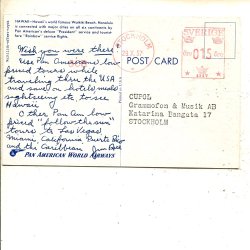 HAWAII—Hawaii's world famous Waikiki Beach. Honolulu
is connected with major cities on all six continents by
Pan American's deluxe "President" service and tourist
"Rainbow" service flights.
Wish you were there!
Use Pan American's low
priced tours while
traveling thru the USA
and save on hotels, meals
sightseeing etc to see
Hawaii
Other Pan Am low
priced "follow the sun"
tours to Las Vegas,
Miami, California Puerto Rico
and the Caribbean
PAN AMERICAN WORLD AIRWAYS
STOCKHOLM
POST CARD
SVERIGE
015
CUPOL
Grammofon & Musik AB
Katarina Bangata 17
STOCKHOLM